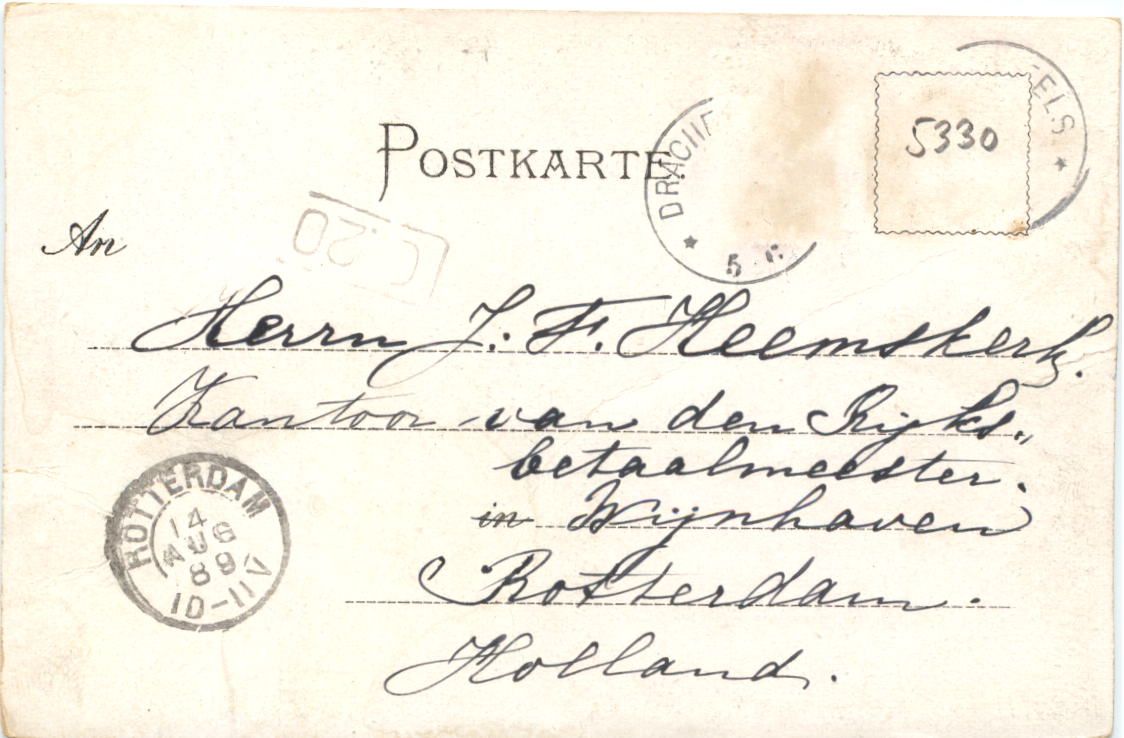 POSTKARTE.
5330
ELS
DRACH
5
An
C.20
Herrn J. F. Heemskerk.
Kantoor van den Rijks„
betaalmeester.
in Wijnhaven
Rotterdam.
Holland.
ROTTERDAM
14
AUG
89
10-11V